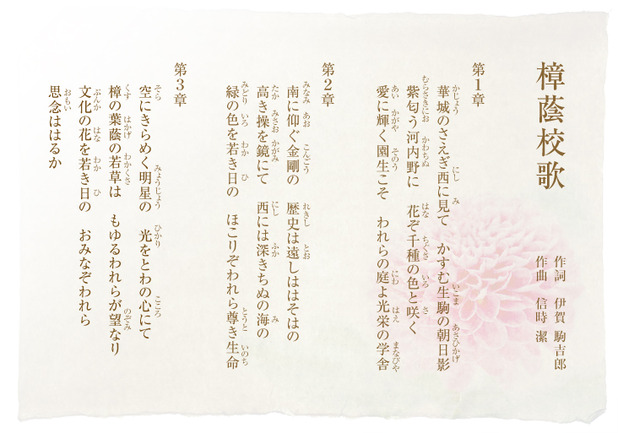 樟蔭校歌
作詞 伊賀 駒吉郎
作曲 信時 潔
第1章
華城のさえぎ西に見て かすむ生駒の朝日影
紫匂う河内野に 花ぞ千種の色と咲く
愛に輝く園生こそ われらの庭よ光栄の学舎
第2章
南に仰ぐ金剛の 歴史は遠しははそはの
高き操を鏡にて 西には深きちぬの海の
緑の色を若き日の ほこりぞわれら尊き生命
第3章
空にきらめく明星の 光をとわの心にて
樟の葉蔭の若草は もゆるわれらが望なり
文化の花を若き日の おみなぞわれら
思念ははるか